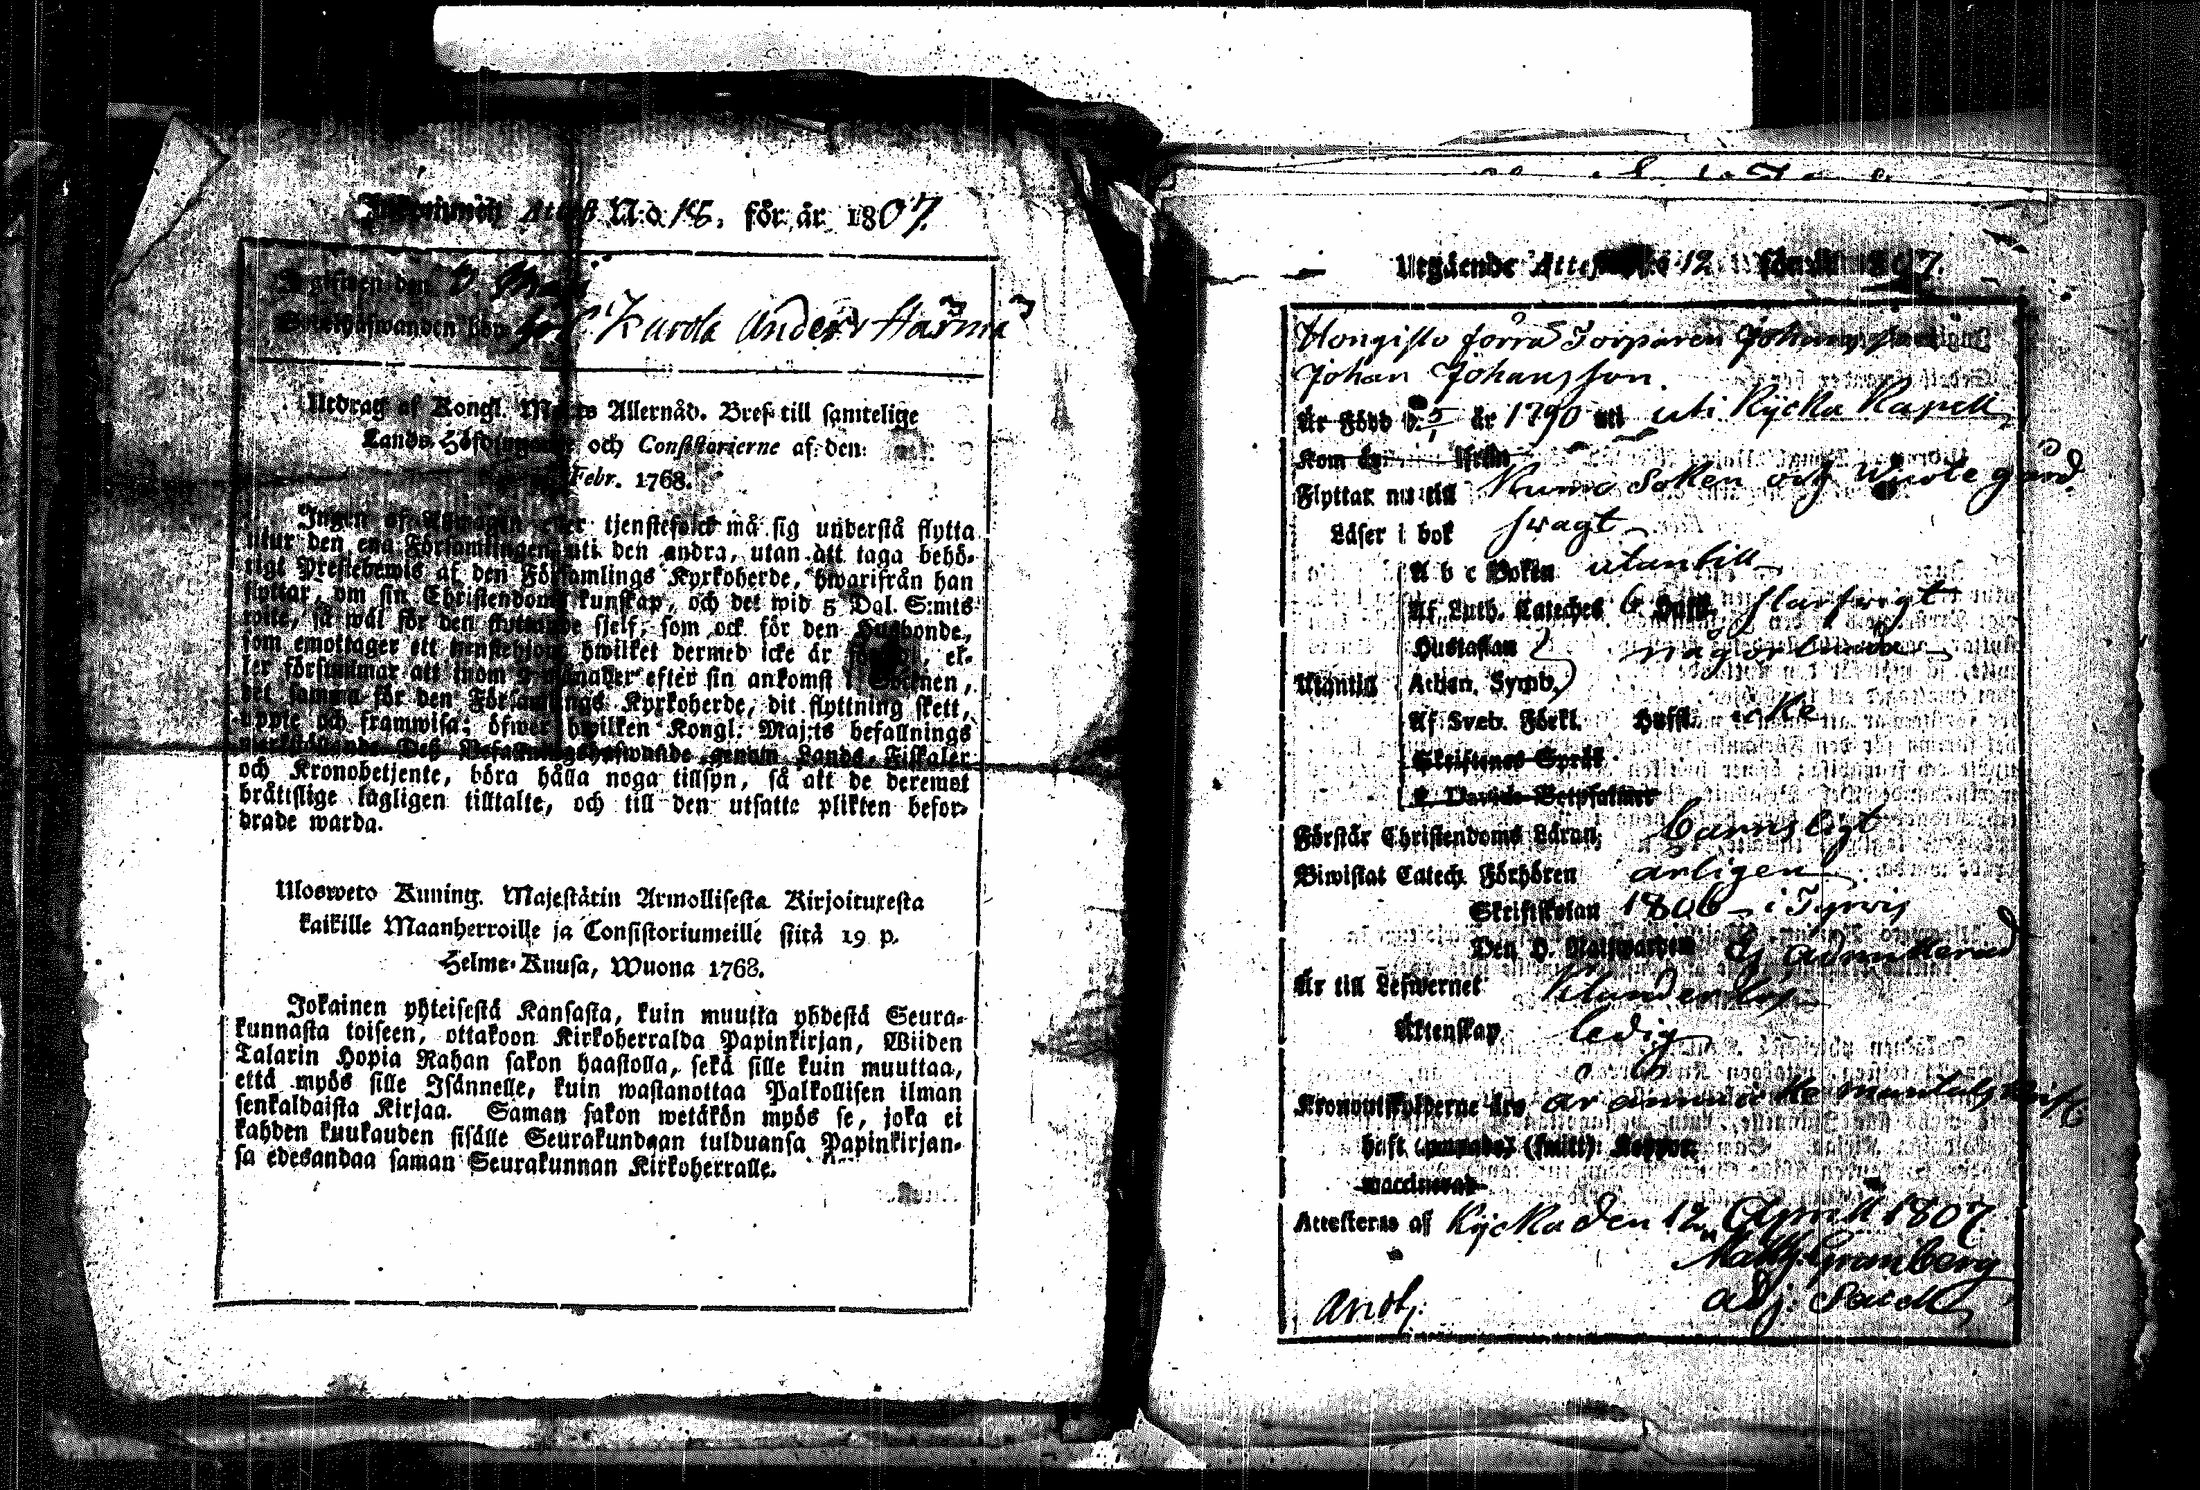 Attest N:o 18. för år 1807.
den
Kurola Anders Harma
Utdrag af Kongl. Maj:ts Allernåd. Bref till samtelige
Lands-Höfdingarne och Consistorierne af den
Febr. 1768.
Ingen af tjenstefolck må sig understå flytta
utur den ena Församlingen uti den andra, utan att taga behö-
rigt Prestebewis af den Församlings Kyrkoherde, hwarifrån han
flyttar, om sin Christendoms kunskap, och det wid 5 Dal. S:mts
wite, så wäl för den flyttande sjelf, som ock för den Husbonde,
som emottager ett tienstehjon, hwilket dermed icke är , el-
ler försummar att inom 2 månader efter sin ankomst i Socknen,
det samma för den Församlings Kyrkoherde, dit flyttning skett,
uppte och framwisa; öfwer hwilken Kongl. Maj:ts befallnings
werkställande Deß Befallningshafwande genom Lands-Fiskaler
och Kronobetjente, böra hålla noga tillsyn, så att de deremot
brättslige lagligen tilltalte, och till den utsatte plikten befor-
drade warda.
Ulosweto Kuning. Majestätin Armollisesta Kirjoituxesta
kaikille Maanherroille ja Consistoriumeille siitä 19 p.
Helme-Kuusa, Wuona 1768.
Jokainen yhteisestä Kansasta, kuin muutta yhdestä Seura-
kunnasta toiseen, ottakoon Kirkoherralda Papinkirjan, Wiiden
Talarin Hopia Rahan sakon haastolla, sekä sille kuin muuttaa,
että myös sille Isännelle, kuin wastanottaa Palkollisen ilman
senkaldaista Kirjaa. Saman sakon wetäkön myös se, joka ei
kahden kuukauden sisälle Seurakundaan tulduansa Papinkirjan-
sa edesandaa saman Seurakunnan Kirkoherralle.
Utgående Attest N:o 12 för år 1807.
Hongisto förra Torparen Johans
Johan Johansson.
Är Född d. 5/1 år 1790 uti uti Kycka Kapell
Kom hit ifrån
Flyttar nu till Kumo Soken och Wuolle gård
Läser i bok swagt
A b c Boken utantill
Af Luth. Cateches 6 Hufst. slarfwigt
Hustaflan
Utantill Athan. Symb.
Af Sveb. Förkl. Hufst. icke
Skriftenes Språk
D. Davids Botpsalmer
Förstår Christendoms Läran barnsligt
Biwistat Catech. Förhören årligen
Skriftskolan 1806 i Tyrvis
Den H. Nattwarden Ej Admitterad
Är till Lefwernet klanderlös
Äktenskap ledig
Kronoutskylderne års är ännu icke mantalskrift
haft (smitt) Koppor
waccinerad
Attesteras af Kycka den 12 April 1807
Math. Granberg
Adj. Sacell